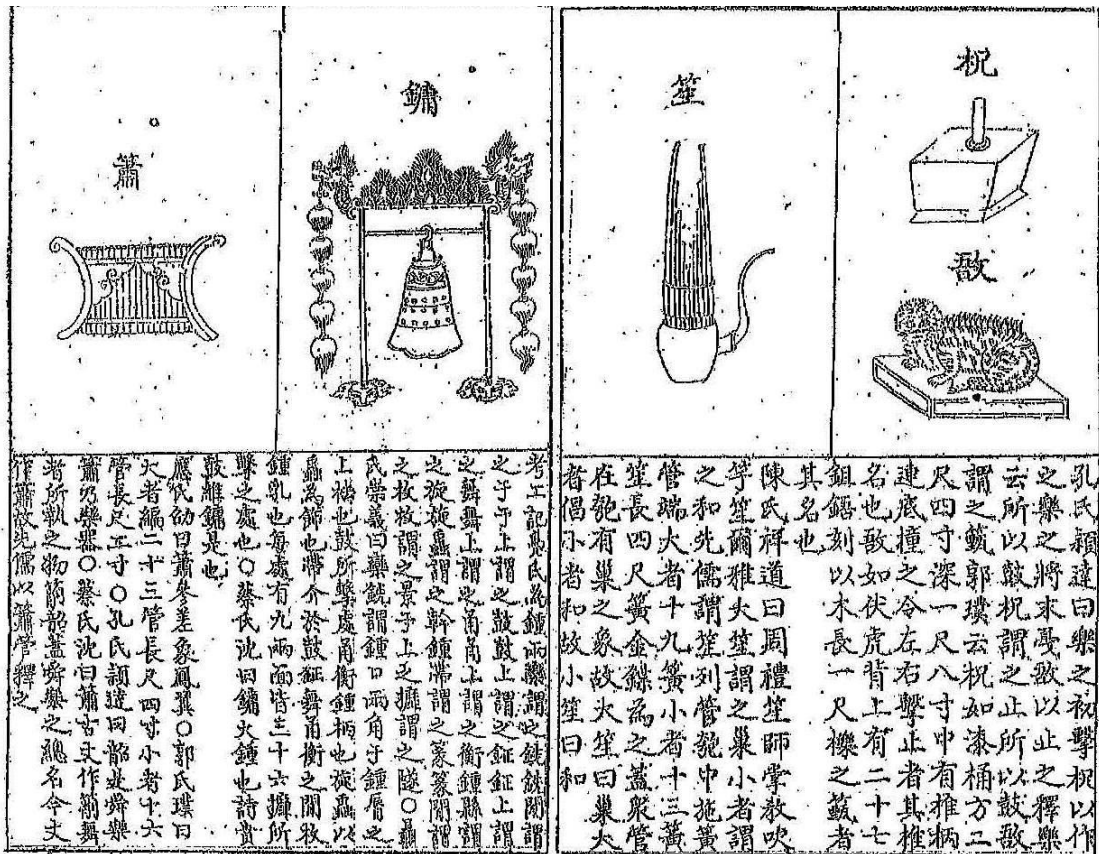 柷
敔
笙
孔氏穎達曰樂之初擊柷以作
之樂之將末戞敔以止之釋樂
云所以鼓柷謂之止所以鼓敔
謂之籈郭璞云柷如漆桶方二
尺四寸深一尺八寸中有椎柄
連底撞之令左右擊止者其椎
名也敔如伏虎背上有二十七
鉏鋙刻以木長一尺櫟之籈者
其名也
陳氏祥道曰周禮笙師掌教吹
竽笙爾雅大笙謂之巢小者謂
之和先儒謂笙列管匏中施簧
管端大者十九簧小者十三簧
笙長四尺簧金鍱為之蓋衆管
在匏有巢之象故大笙曰巢大
者倡小者和故小笙曰和
鏞
簫
考工記鳧氏為鍾兩欒謂之銑銑間謂
之于于上謂之鼓鼓上謂之鉦鉦上謂
之舞舞上謂之甬甬上謂之衡鍾縣謂
之旋旋蟲謂之幹鍾帶謂之篆篆間謂
之枚枚謂之景于上之攠謂之隧○聶
氏崇義曰欒銑謂鍾口兩角于鍾脣之
上袪也鼓所擊處甬衡鍾柄也旋蟲以
蟲為飾也帶介於鼓鉦舞甬衡之間枚
鍾乳也每處有九兩面皆三十六攠所
擊之處也○蔡氏沈曰鏞大鍾也詩賁
鼓維鏞是也
應氏劭曰簫參差象鳳翼○郭氏璞曰
大者編二十三管長尺四寸小者十六
管長尺二寸○孔氏穎達曰韶是舜樂
簫乃樂器○蔡氏沈曰簫古文作箾舞
者所執之物箾韶蓋舜樂之總名今文
作簫故先儒以簫管釋之